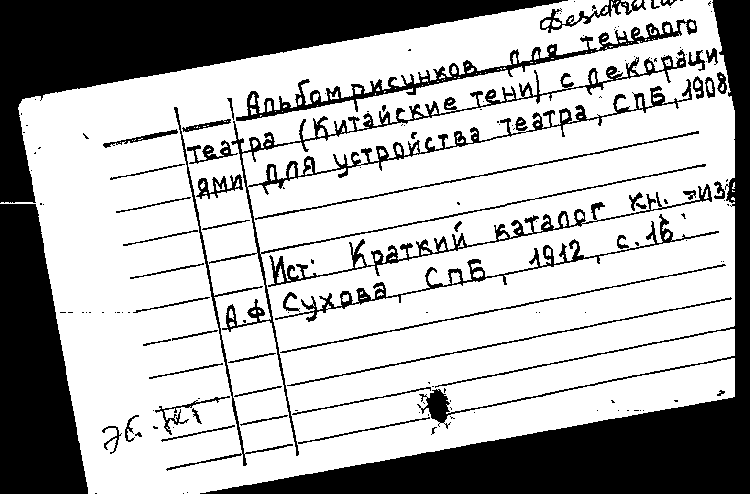 Desiderata
Альбом рисунков для теневого
театра (Китайские тени), с декораци-
ями для устройства театра, СПБ, 1908.
Ист: Краткий каталог кн. -из
А.Ф Сухова, СПБ, 1912, с. 16.